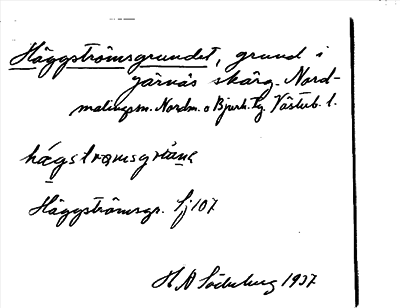 Häggströmsgrundet, grund i
Järnäs skärg. Nord-
malingsn. Nordm. o Bjurh. tg. Västerb. l.
Häggströmsgr. Sj 107
H A Söderberg 1937